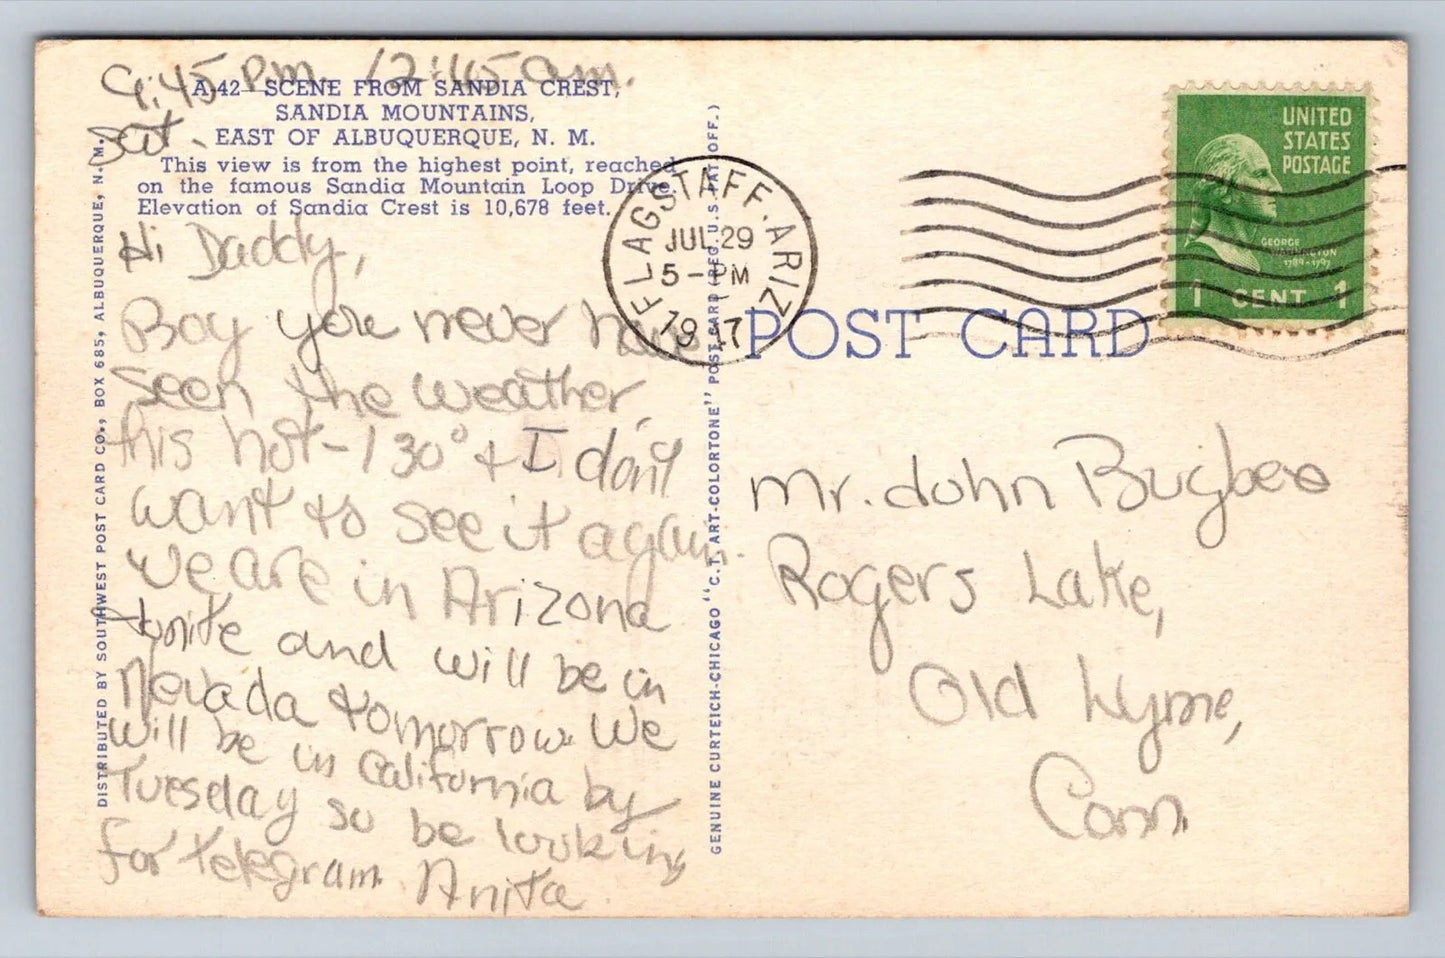 9:45 P.m. 12:45 a.m.
Sat.
A-42—SCENE FROM SANDIA CREST,
SANDIA MOUNTAINS,
EAST OF ALBUQUERQUE, N. M.
This view is from the highest point, reached
on the famous Sandia Mountain Loop Drive.
Elevation of Sandia Crest is 10,678 feet.
Hi Daddy,
Boy you never have
seen the weather
this hot - 130° + I don't
want to see it again.
We are in Arizona
tonite and will be in
Nevada tomorrow. We
will be in California by
Tuesday so be looking
for telegram Anita
DISTRIBUTED BY SOUTHWEST POST CARD CO., BOX 685, ALBUQUERQUE, N. M.
GENUINE CURTEICH-CHICAGO "C.T. ART-COLORTONE" POST CARD (REG. U.S. PAT. OFF.)
FLAGSTAFF. ARIZ.
JUL 29
5-PM
19 7
UNITED
STATES
POSTAGE
GEORGE
WASHINGTON
1789-1797
1 CENT 1
POST CARD
Mr. John Bugbee
Rogers Lake,
Old Lyme,
Conn.